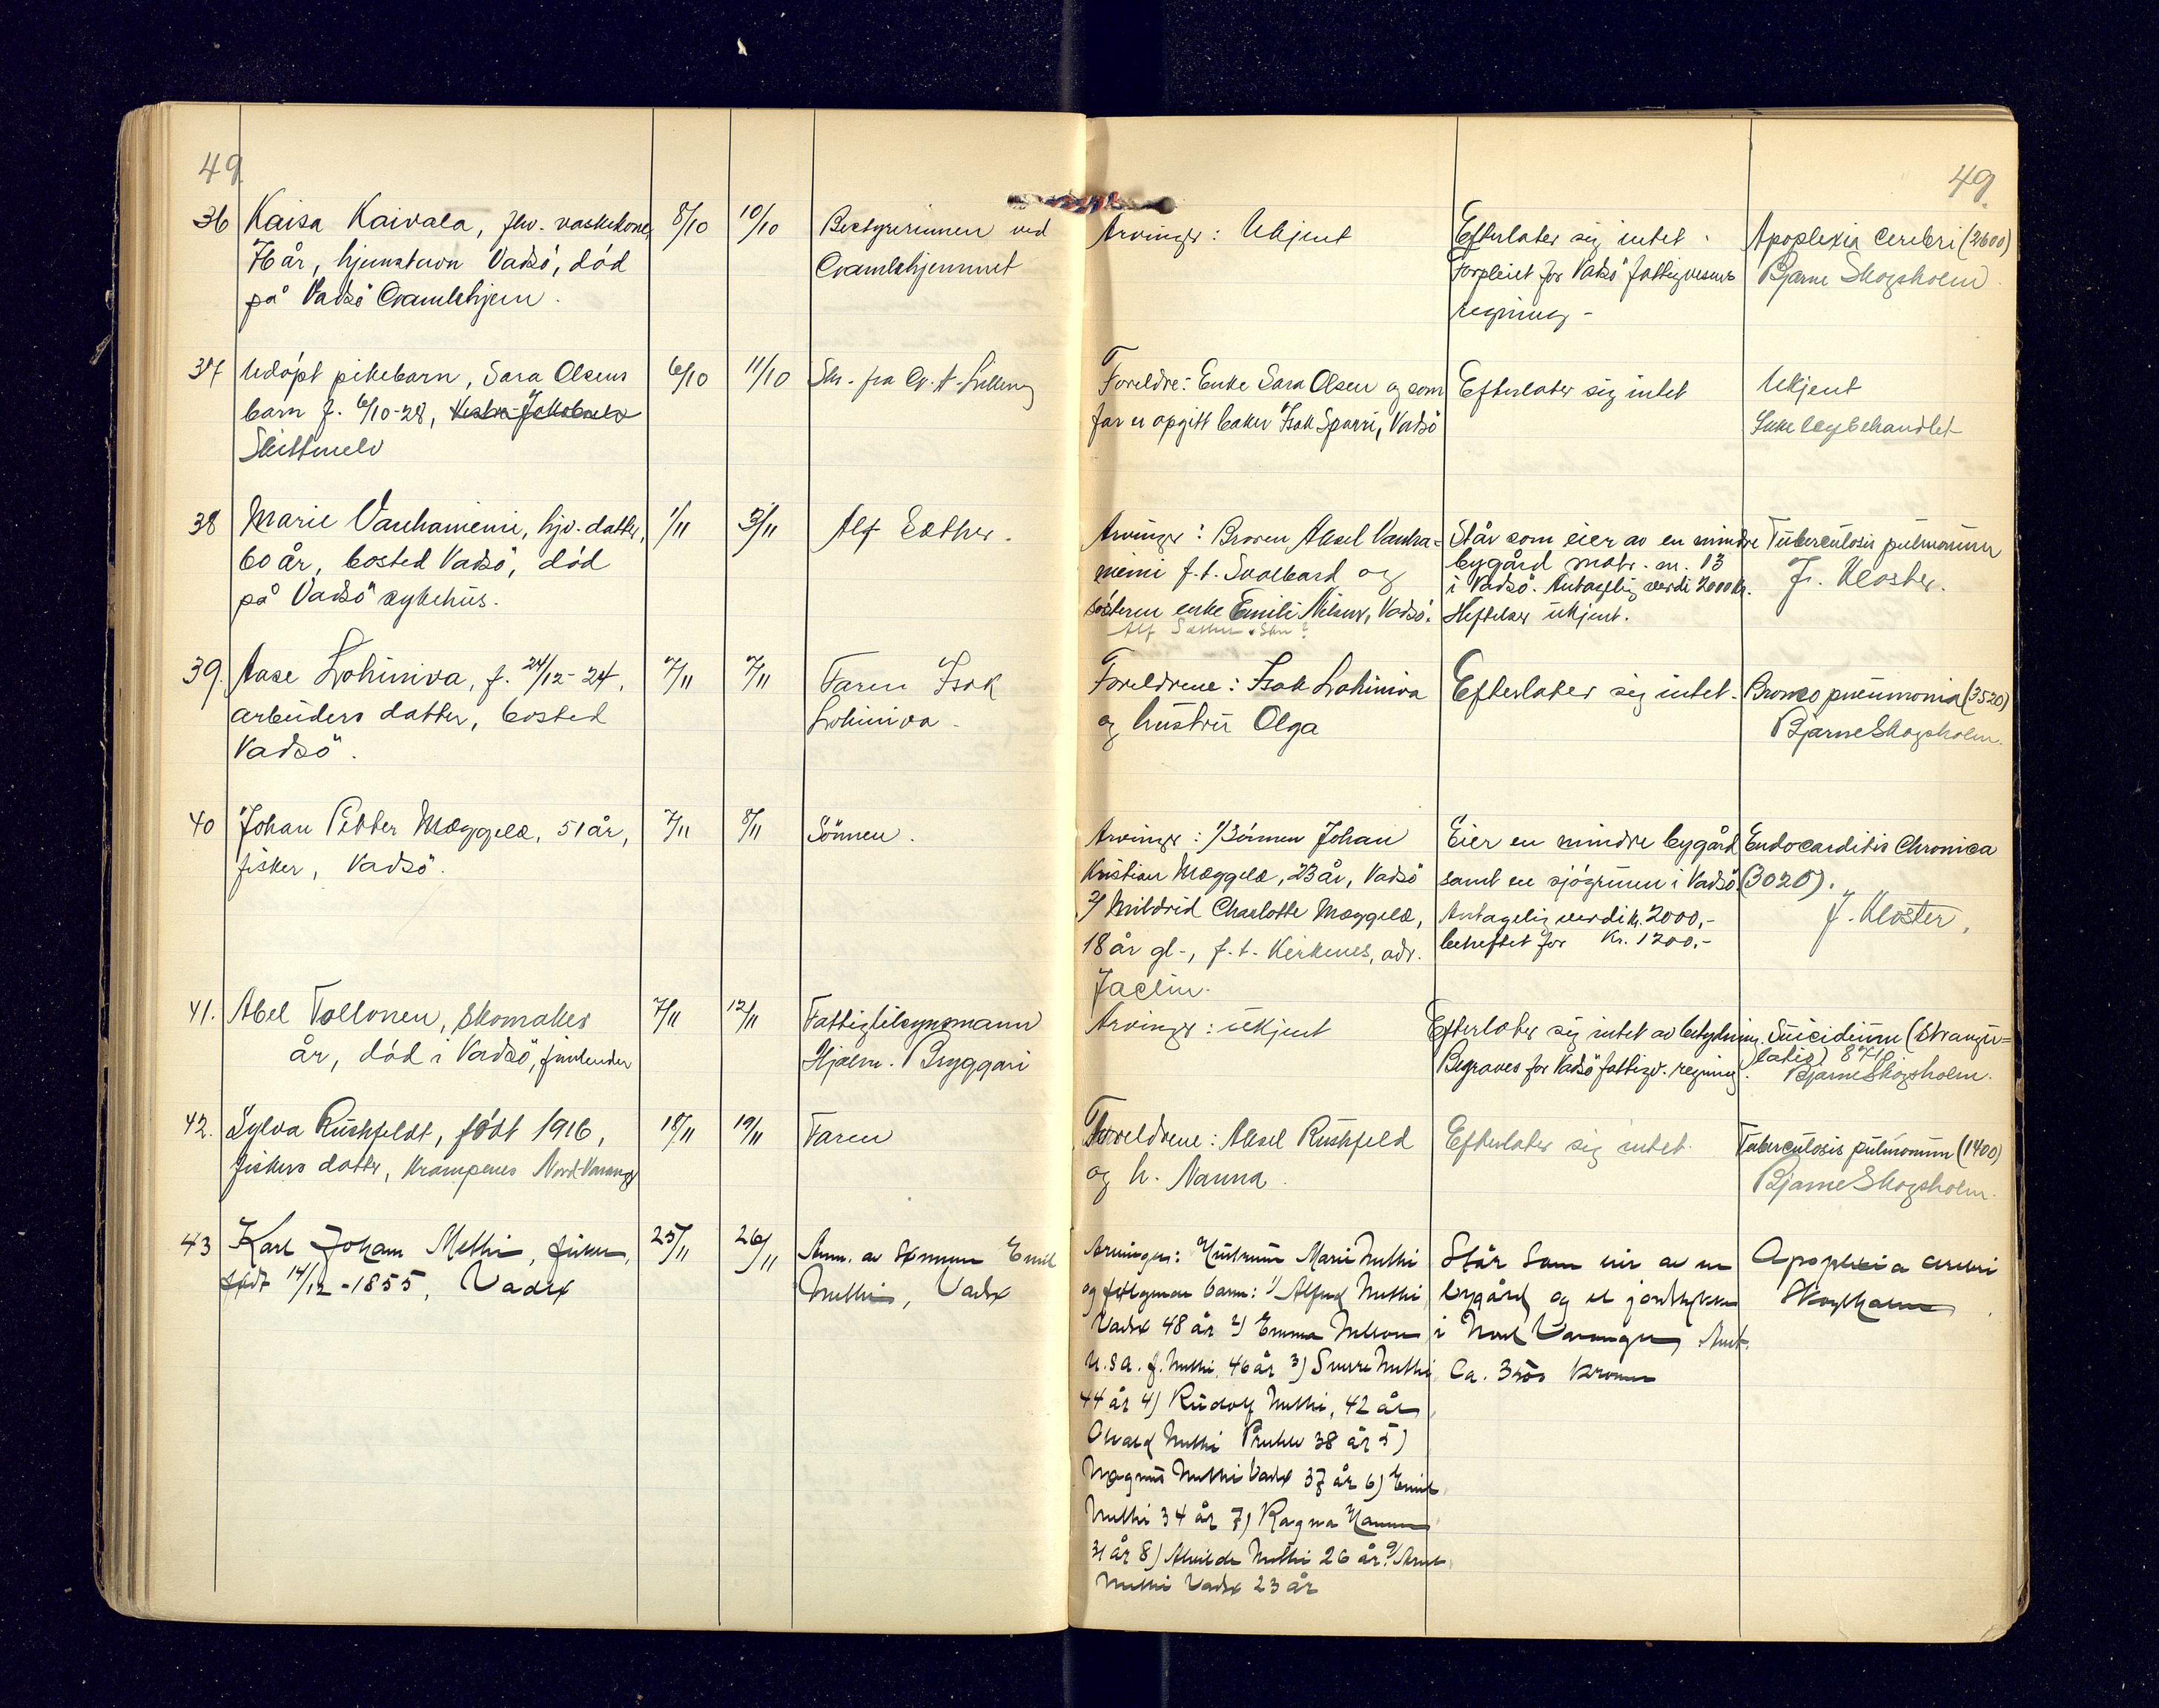 49
49.
36 Kaisa Kaivala, fhv. vaskekone, 8/10 10/10 Bestyrerinnen ved
76 år, hjemstavn Vadsö, död Gamlehjemmet
på Vadsö Gamlehjem.
Arvinger: Ukjent
Efterlater sig intet.
Forpleiet for Vadsö fattigvesens
regning -
Apoplexia cerebri (2600)
Bjarne Skogsholm
37 Udöpt pikebarn, Sara Olsens 6/10 11/10 Skr. fra
barn f. 6/10-28, Vestre Jakobselv
Skittenelv
Foreldre: Enke Sara Olsen og som
far er opgitt baker Isak Sparri, Vadsö
Efterlater sig intet
Ukjent
Ikke legebehandlet
38 Marie Vanhaniemi, hjv. datter, 1/11 3/11 Alf Sæther.
60 år, bosted Vadsö, död
på Vadsö sykehus.
Arvinger: Broren Aksel Vanha-
niemi f.t. Svalbard og
sösteren enke Emili Nilsen, Vadsö.
Alf Sæther
Står som eier av en mindre
bygård matr. nr. 13
i Vadsö. Antagelig verdi 2000 kr.
Heftelser ukjent.
Tuberculosis pulmonum
J. Kloster.
39. Aase Lohiniva, f. 24/12-24, 7/11 7/11 Faren Isak
arbeiders datter, bosted Lohiniva.
Vadsö.
Foreldrene: Isak Lohiniva
og hustru Olga
Efterlater sig intet.
Bronco pneumonia (3520)
Bjarne Skogsholm.
40 Johan Petter Mæggelæ, 51 år, 7/11 8/11 Sönnen.
fisker, Vadsö.
Arvinger: 1/ Sönnen Johan
Kristian Mæggelæ, 23 år, Vadsö
2/ Mildrid Charlotte Mæggelæ,
18 år gl., f.t. Kirkenes, adr.
Eier en mindre bygård
samt en sjögrunn i Vadsö.
Antagelig verdi kr. 2000,-
beheftet for kr. 1200,-
Endocarditis Chronica
(3020).
J. Kloster.
41. Abel Tollonen, skomaker 7/11 12/11 Fattigtilsynsmann
år, död i Vadsö, finlender Hjalm. Bryggari
Arvinger: ukjent
Efterlater sig intet av betydning.
Begraves for Vadsö fattigv. regning.
Suicidium (strangu-
latio)
Bjarne Skogsholm.
42. Sylva Rushfeldt, født 1916, 18/11 19/11 Faren
fiskers datter, Krampenes Nord-Varanger
Foreldrene: Aksel Rushfeld
og h. Nanna.
Efterlater sig intet.
Tuberculosis pulmonum (1400)
Bjarne Skogsholm.
43 Karl Johan Methi, fisker, 25/11 26/11 Anm. av sønnen Emil
født 14/12-1855, Vadsø Methi, Vadsø
Arvinger: Hustruen Marie Methi
og følgende barn: 1) Alfred Methi
Vadsø 48 år 2) Emma Nelson
U.S.A. f. Methi 46 år 3) Methi
44 år 4) Rudolf Methi, 42 år
Methi 38 år 5)
Magnus Methi Vadsø 37 år 6) Emil
Methi 34 år 7) Ragna
31 år 8) Methi 26 år 9)
Methi Vadsø 23 år
Står som eier av en
bygård og et jordstykke
i Nord Varanger. Ant.
Ca. 3500 kroner
Apoplexia cerebri
Skogsholm